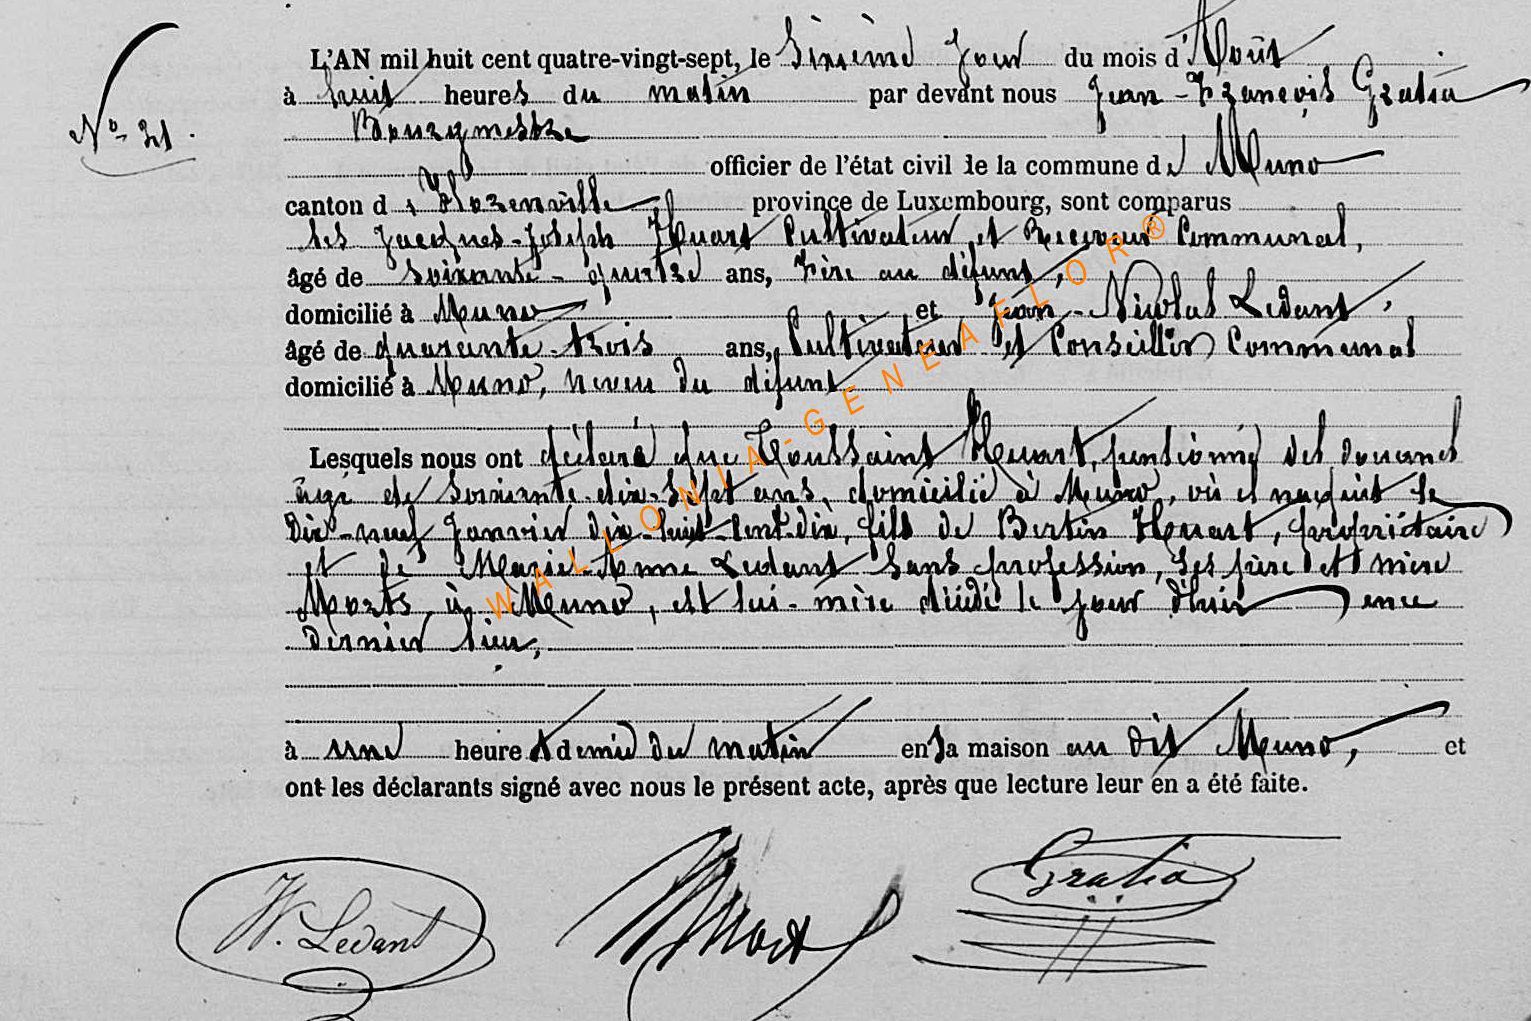 L'AN mil huit cent quatre-vingt-sept, le Sixième Jour du mois d'Août
à huit heures du matin par devant nous Jean-François Gratia
Bourgmestre
N° 21.
officier de l'état civil de la commune de Muno
canton de Florenville province de Luxembourg, sont comparus
les Jacques-Joseph Huart Cultivateur et Receveur Communal,
âgé de soixante-quatre ans, frère au défunt,
domicilié à Muno et Jean-Nicolas Ledant,
âgé de quarante-trois ans, Cultivateur et Conseiller Communal
domicilié à Muno, neveu du défunt.
Lesquels nous ont déclaré que Toussaint Huart, pensionné des douanes
âgé de soixante-dix-sept ans, domicilié à Muno, où il naquit le
dix-neuf Janvier dix-huit-cent-dix, fils de Bertin Huart, propriétaire
et de Marie-Anne Ledant sans profession, ses père et mère
Morts à Muno, est lui-même décédé le jour d'hier en ce
dernier lieu,
à une heure et demie du matin en sa maison au dit Muno, et
ont les déclarants signé avec nous le présent acte, après que lecture leur en a été faite.
N. Ledant Huart Gratia
WALLONIA-GENEAFLOR®